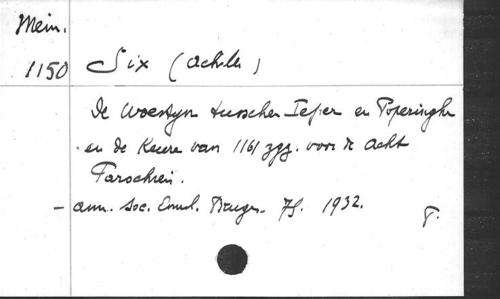 Mein.
1150 Six (Achille)
De Woestyn tusschen Ieper en Poperinghe
en de Keure van 1161 zgz. voor de Acht
Parochien.
- ann. Soc. Emul. Bruges. 75. 1932.
P.